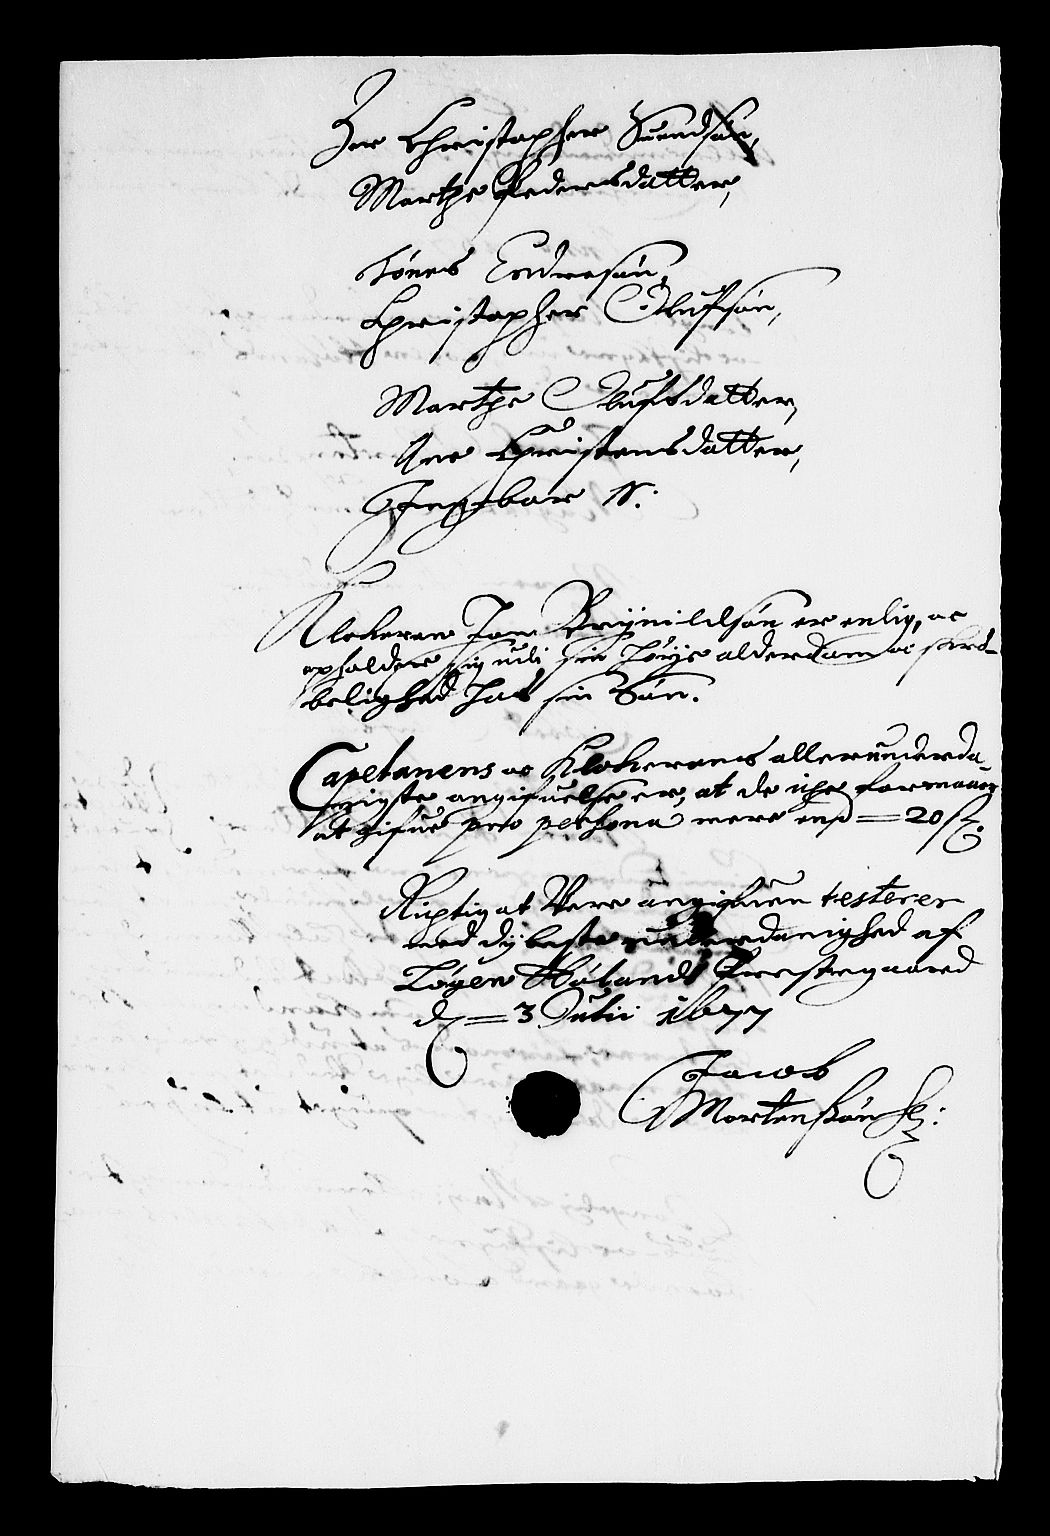 Per Christopher Suendsøn,
Marthe Pedersdatter,
Tønes Endresøn,
Christopher Olufsøn,
Marthe Olufsdatter,
Ane Christensdatter,
Ingebor N:
Klokeren Jon Brynildsøn er enlig, oc
opholder sig udi sin høye alderdom oc skrø-
belighed hos sin Søn.
Capelanens oc Klokerens allerunderda-
nigste angifuelse er, at de iche formaaer
at gifue pro persona mere end = 20 s.
Richtig at Vere angifuen testerer
med dybeste underdanighed af
Høland Prestegaard
d = 3 Julii 1677
Jacob
Mortensøn